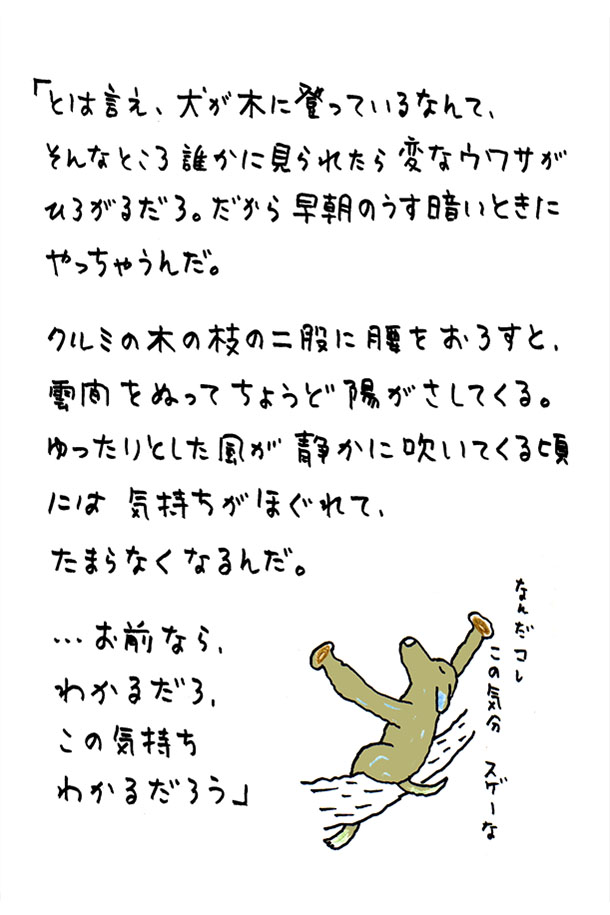 「とは言え、犬が木に登っているなんて、
そんなところ誰かに見られたら変なウワサが
ひろがるだろ。だから早朝のうす暗いときに
やっちゃうんだ。
クルミの木の枝の二股に腰をおろすと、
雲間をぬってちょうど陽がさしてくる。
ゆったりとした風が静かに吹いてくる頃
には 気持ちがほぐれて、
たまらなくなるんだ。
…お前なら、
わかるだろ、
この気持ち
わかるだろう」
なんだコレ
この気分 スゲーな